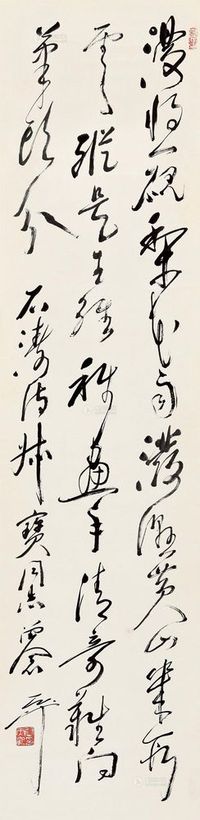 漫將一硯梨花雨潑濕黃山幾段
雲縱是王維稱畫手清奇難向
筆頭分 石濤詩 寶同志